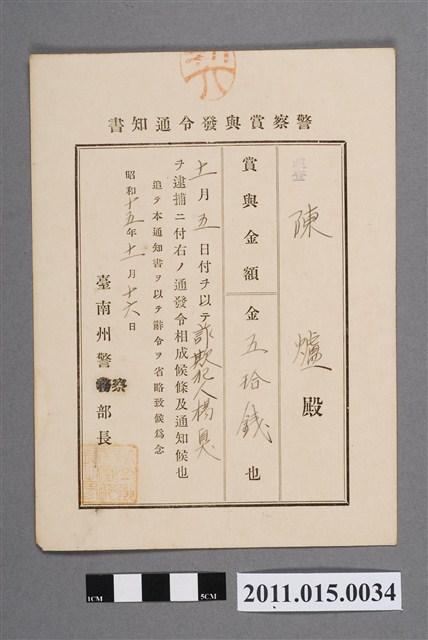 警察賞與發令通知書
陳 爐 殿
賞與金額 金五拾錢也
十一月五日付ヲ以テ詐欺犯人楊臭
ヲ逮捕ニ付右ノ通發令相成候條及通知候也
追テ本通知書ヲ以テ辭令ヲ省略致候爲念
昭和十五年十一月十六日
臺南州警察部長
1CM
5CM
2011.015.0034